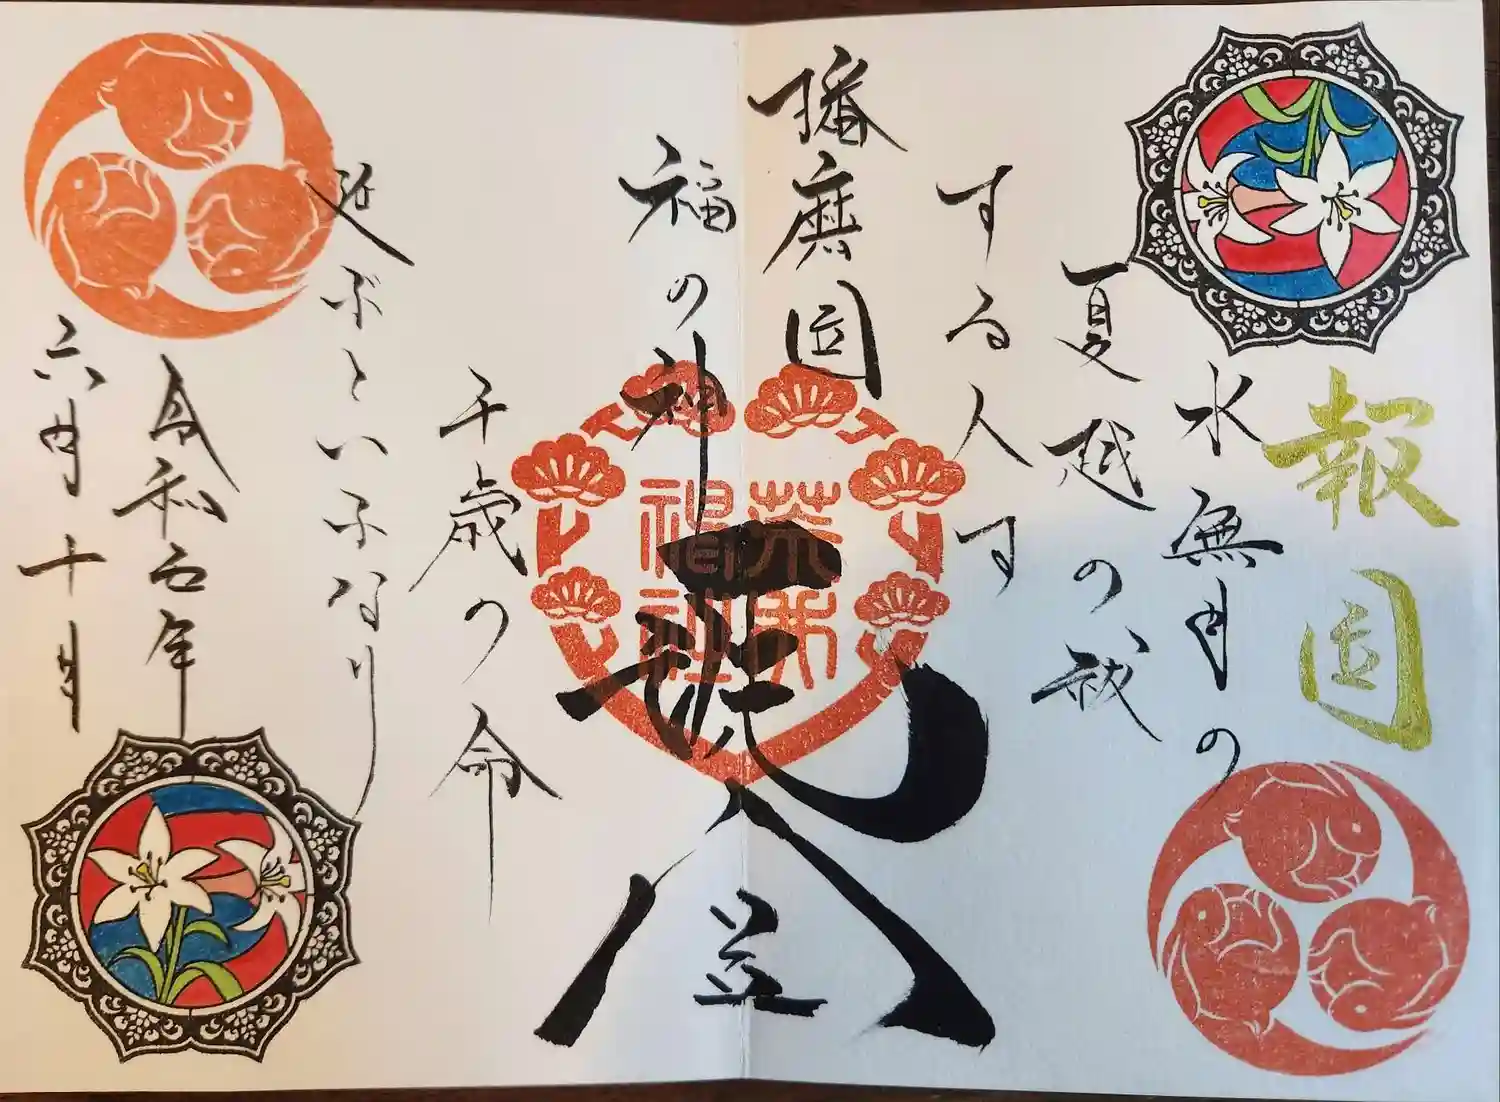 報国
水無月の
夏越の祓
する人は
播磨国
福の神
荒井
神社
千歳の命
延ぶといふなり
令和五年
六月十日